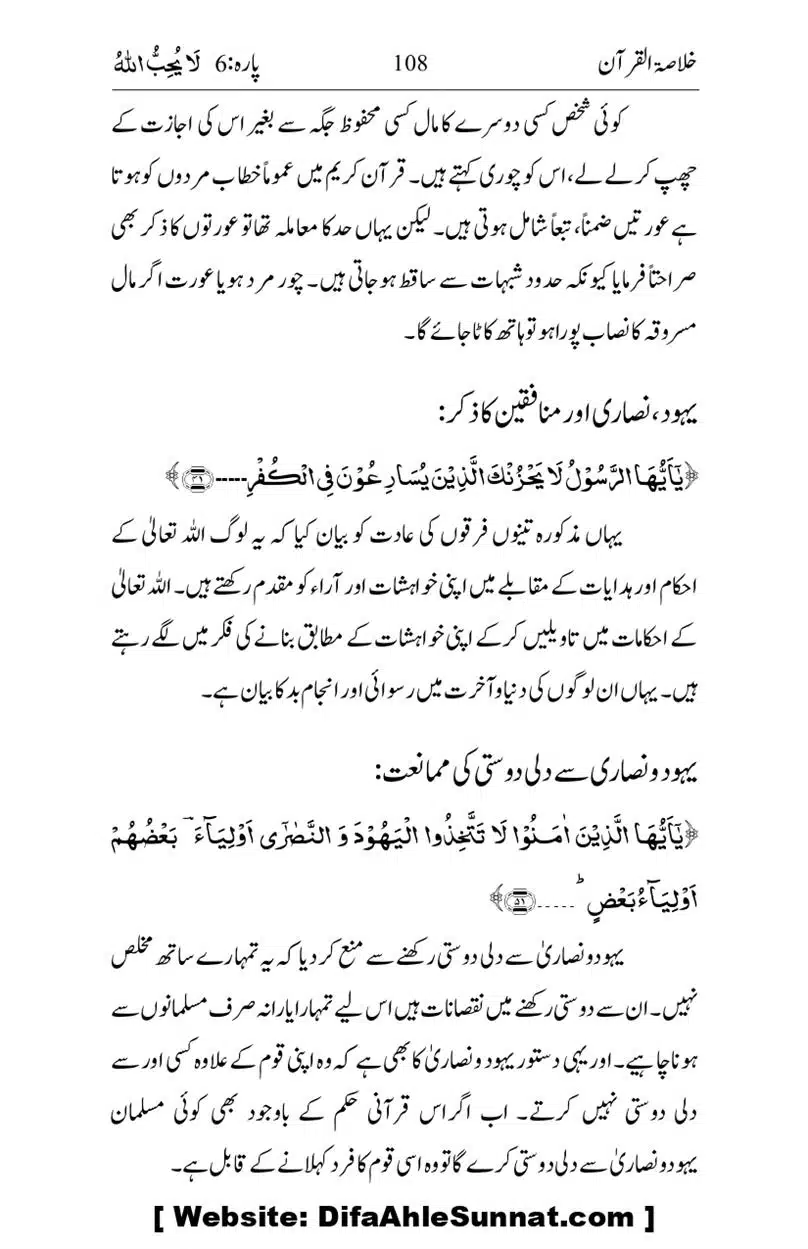 خلاصۃ القرآن 108 پارہ:6 لَا یُحِبُّ اللہُ
کوئی شخص کسی دوسرے کا مال کسی محفوظ جگہ سے بغیر اس کی اجازت کے
چھپ کر لے لے، اس کو چوری کہتے ہیں۔ قرآن کریم میں عموماً خطاب مردوں کو ہوتا
ہے عورتیں ضمناً، تبعاً شامل ہوتی ہیں۔ لیکن یہاں حد کا معاملہ تھا تو عورتوں کا ذکر بھی
صراحتاً فرمایا کیونکہ حدود شبہات سے ساقط ہو جاتی ہیں۔ چور مرد ہو یا عورت اگر مال
مسروقہ کا نصاب پورا ہو تو ہاتھ کاٹا جائے گا۔
یہود، نصاری اور منافقین کا ذکر:
﴿یٰۤاَیُّهَا الرَّسُوْلُ لَا یَحْزُنْكَ الَّذِیْنَ یُسَارِعُوْنَ فِی الْكُفْرِ-----﴿۴۱﴾﴾
یہاں مذکورہ تینوں فرقوں کی عادت کو بیان کیا کہ یہ لوگ اللہ تعالیٰ کے
احکام اور ہدایات کے مقابلے میں اپنی خواہشات اور آراء کو مقدم رکھتے ہیں۔ اللہ تعالیٰ
کے احکامات میں تاویلیں کرکے اپنی خواہشات کے مطابق بنانے کی فکر میں لگے رہتے
ہیں۔ یہاں ان لوگوں کی دنیا و آخرت میں رسوائی اور انجام بد کا بیان ہے۔
یہود و نصاری سے دلی دوستی کی ممانعت:
﴿یٰۤاَیُّهَا الَّذِیْنَ اٰمَنُوْا لَا تَتَّخِذُوا الْیَهُوْدَ وَ النَّصٰرٰۤی اَوْلِیَآءَ ۘ بَعْضُهُمْ
اَوْلِیَآءُ بَعْضٍ ؕ -----﴿۵۱﴾﴾
یہود و نصاریٰ سے دلی دوستی رکھنے سے منع کر دیا کہ یہ تمہارے ساتھ مخلص
نہیں۔ ان سے دوستی رکھنے میں نقصانات ہیں اس لیے تمہارا یارانہ صرف مسلمانوں سے
ہونا چاہیے۔ اور یہی دستور یہود و نصاریٰ کا بھی ہے کہ وہ اپنی قوم کے علاوہ کسی اور سے
دلی دوستی نہیں کرتے۔ اب اگر اس قرآنی حکم کے باوجود بھی کوئی مسلمان
یہود و نصاریٰ سے دلی دوستی کرے گا تو وہ اسی قوم کا فرد کہلانے کے قابل ہے۔
[ Website: DifaAhleSunnat.com ]